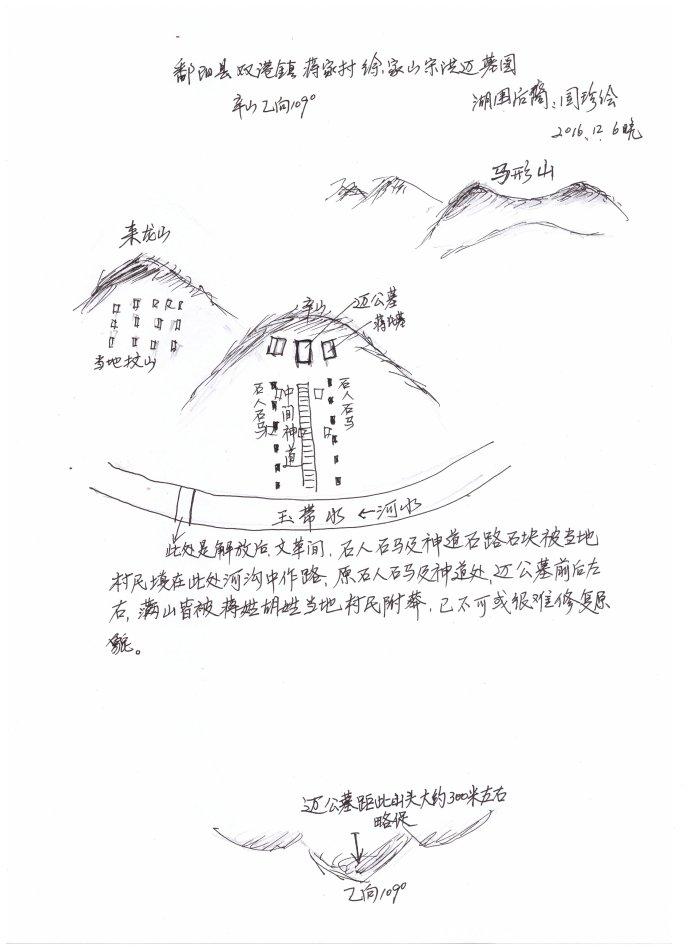 鄱阳县双港镇蒋家村徐家山宋洪迈墓图
辛山乙向109°
湖围后裔:国珍绘
2016.12.6晚
马形山
来龙山
辛山
迈公墓
蒋姓墓
当地坟山
石人石马
中间神道
石人石马
玉带水 ←河水
此处是解放后、文革间,石人石马及神道石路石块被当地
村民填在此处河沟中作路,原石人石马及神道处,迈公墓前后左
右,满山皆被蒋姓胡姓当地村民附葬,已不可或很难修复原
貌。
迈公墓距此山头大约300米左右
乙向109°